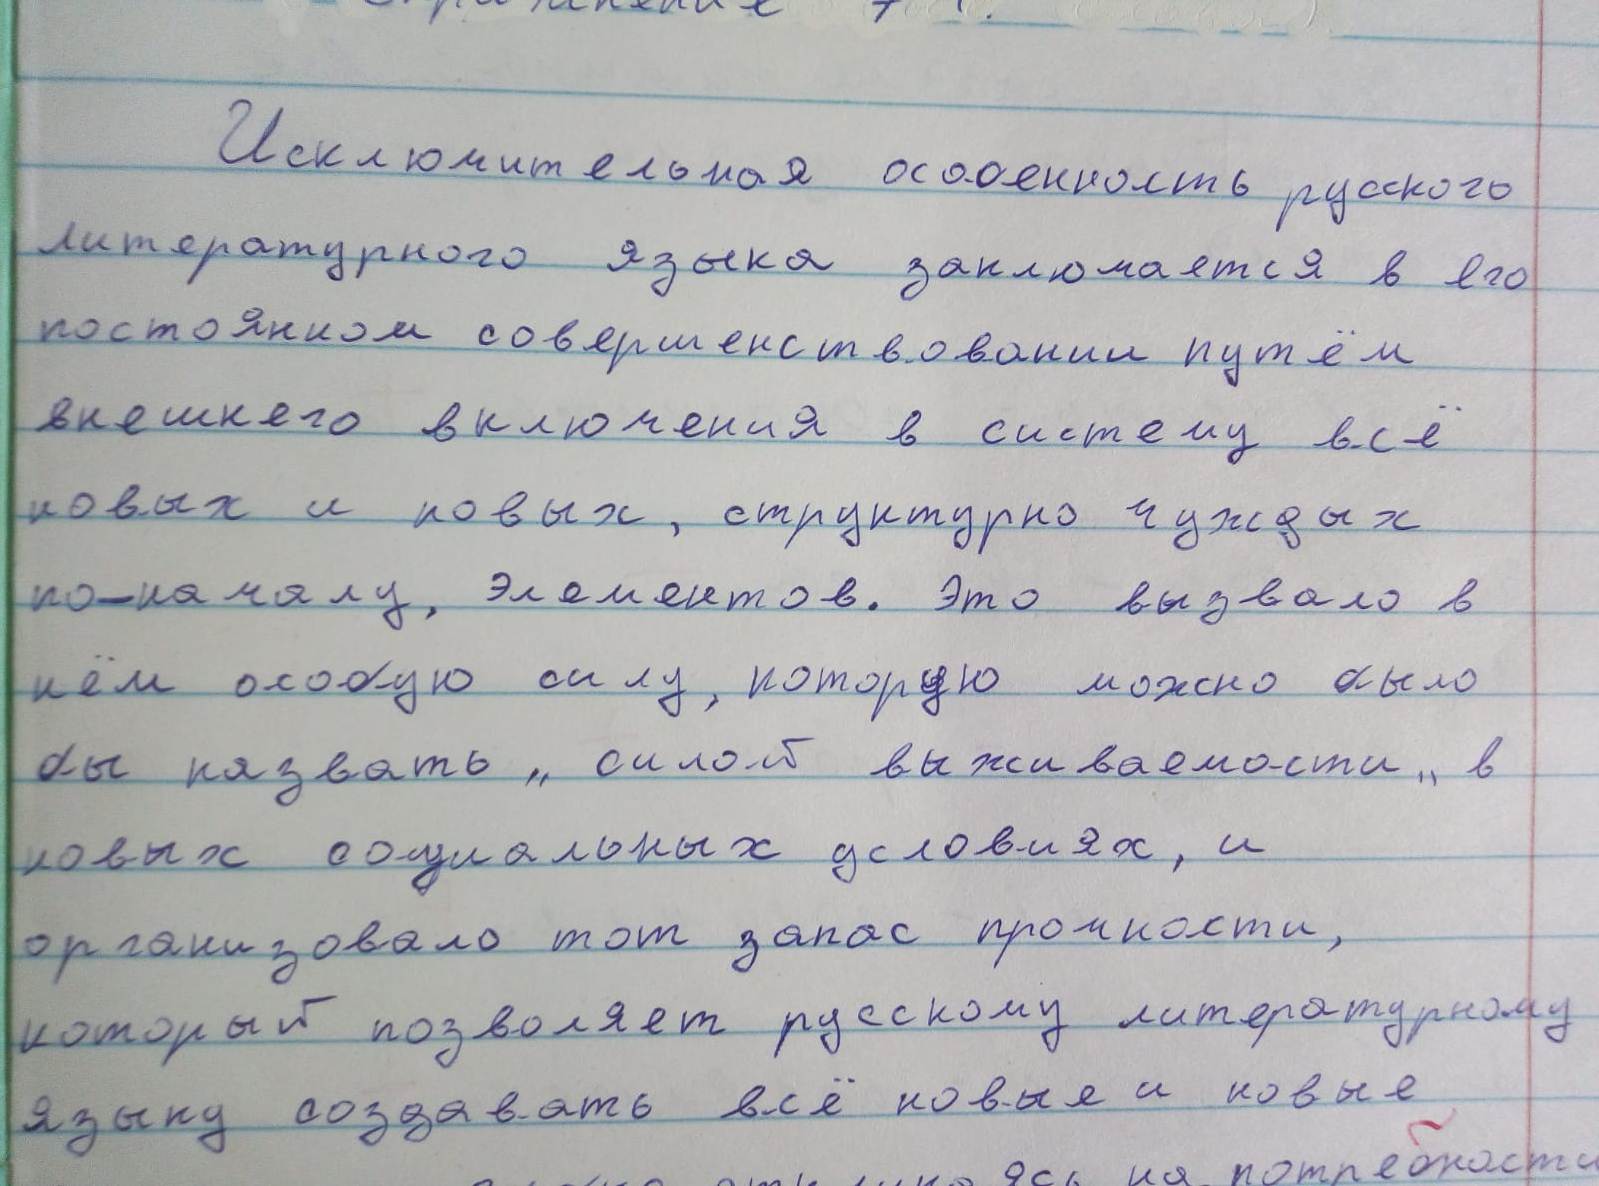 Исключительная особенность русского
литературного языка заключается в его
постоянном совершенствовании путём
внешнего включения в систему всё
новых и новых, структурно чуждых
по-началу, элементов. Это вызвало в
нём особую силу, которую можно было
бы назвать „силой выживаемости„ в
новых социальных условиях, и
организовало тот запас прочности,
который позволяет русскому литературному
языку создавать всё новые и новые
на потребности